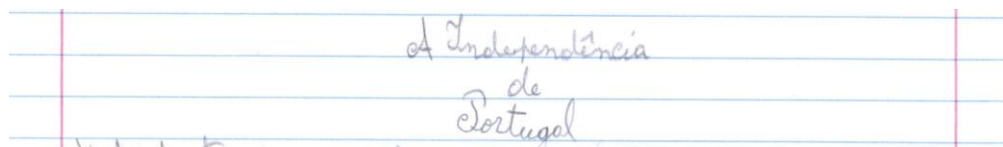 A Independência
de
Portugal